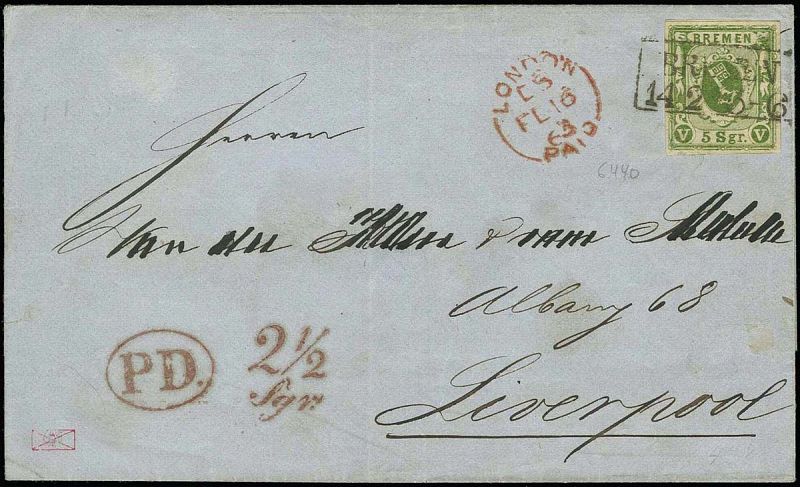 BREMEN
V 5 Sgr. V
BREMEN
14 2 5-6
LONDON
FE 16
63
PAID
6440
Herren
Van der &
Albany 68
Liverpool
P D.
2 1/2
Sgr.